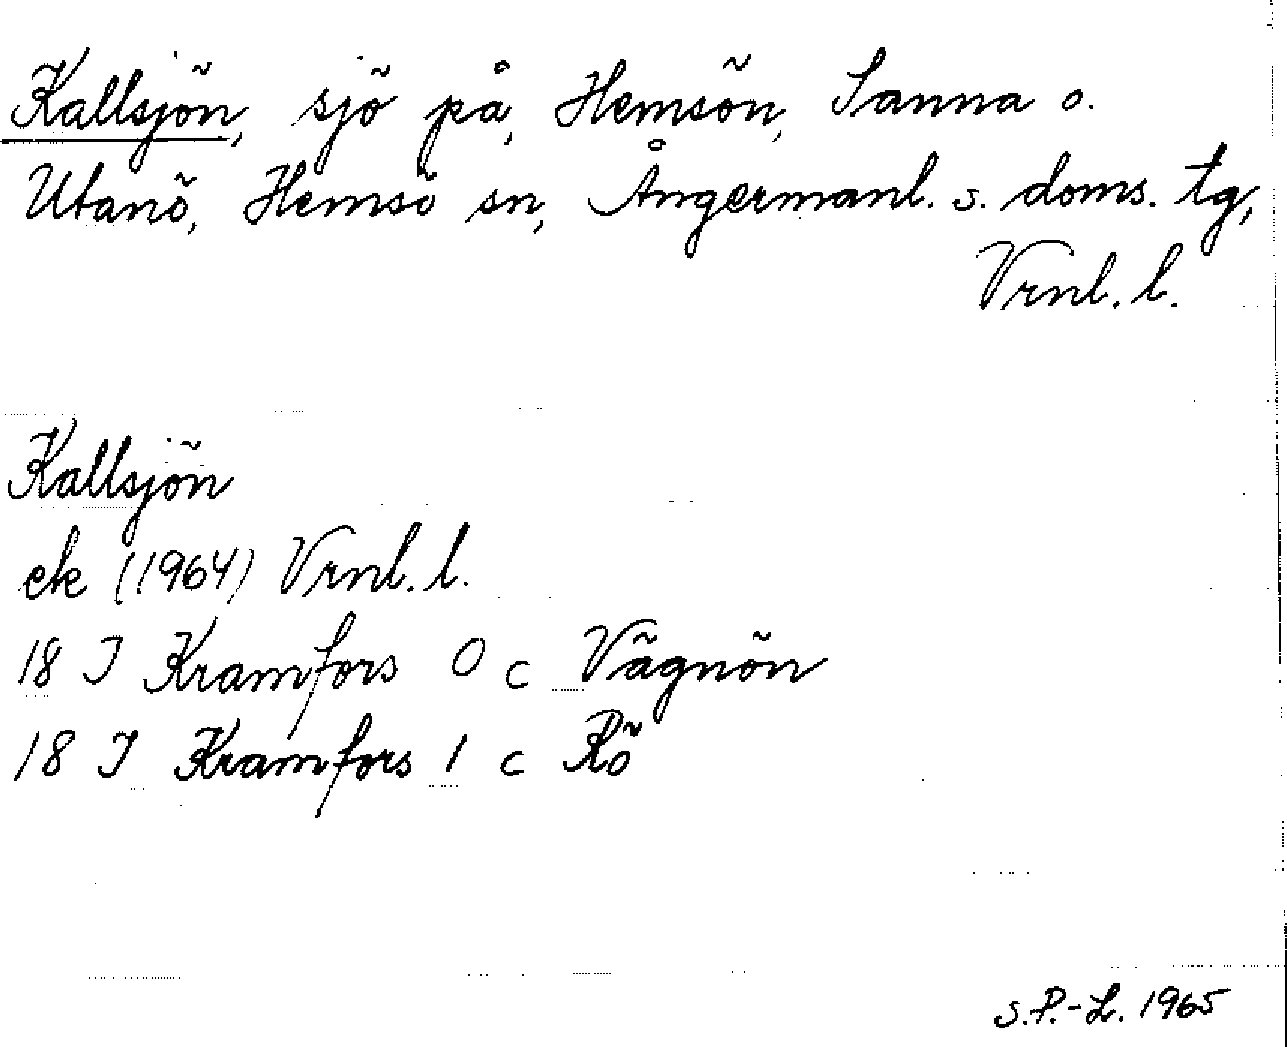 Kallsjön, sjö på Hemsön, Sanna o.
Utanö, Hemsö sn, Ångermanl. s. doms. tg,
Vrnl. l.
Kallsjön
ek (1964) Vrnl. l.
18 I Kramfors 0 c Vägnön
18 I Kramfors 1 c Rö
S.P.-L. 1965